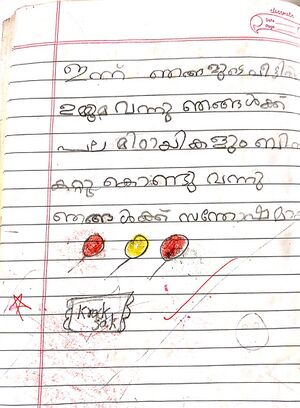 classmate
Date
Page
ഇന്ന് ഞങ്ങളുടെ വീട്ടി
ഉമ്മ വന്നു ഞങ്ങൾക്ക്
പല മിഠായികളും ബി
കറ്റു കൊണ്ടു വന്നു
ഞങ്ങൾക്ക് സന്തോഷമാ
Krack
Jak